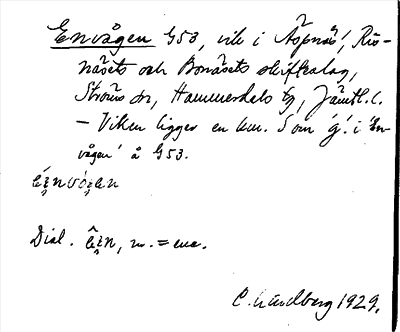 Envågen G53, vik i Äspnäs, Ris-
näsets och Bonäsets skifteslag,
Ströms sn, Hammerdals tg, Jämtl. l.
— Viken ligger en km. S om 'g.' i 'En-
vågen' å G53.
Dial. n, m. = ene.
C. Lindberg 1929.